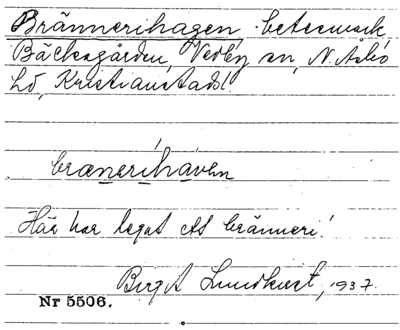 Brännerihagen, betesmark
Bäcksgården, Vedby sn, N. Åsbo
hd, Kristianstads l.
brænerihaven
Här har legat ett bränneri!
Birgit Lundkvist, 1937.
Nr 5506.